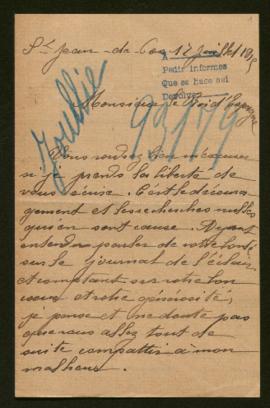 St Jean-de- 17 juillet
A
Pedir informes
Que se hace así
Devolver
Monsieur le Roi d'Espagne
93179
Vous voudrez bien m'excuser
si je prends la liberté de
vous écrire. C'est le décour
agement et les recherches nulles
qui en sont cause. Ayant
entendu parler de votre bonté
sur le journal de l'éclair,
et comptant sur votre bon
coeur et votre générosité,
je pense et ne doute pas
que vous allez tout de
suite compattir à mon
malheur.